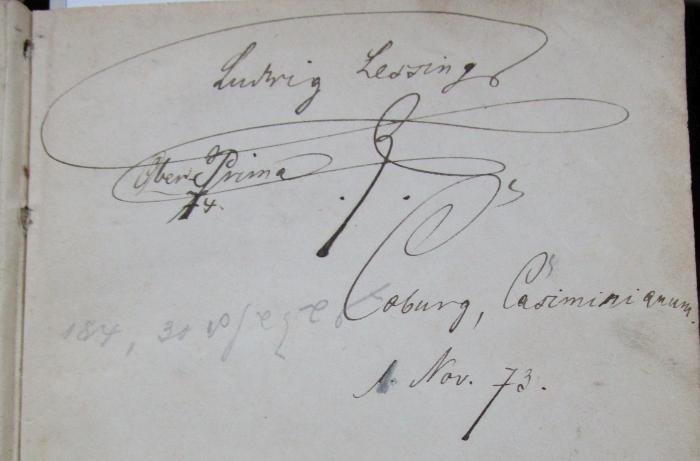 Ludwig Lessing
Ober Prima
74.
Coburg, Casimirianum.
1. Nov. 73.